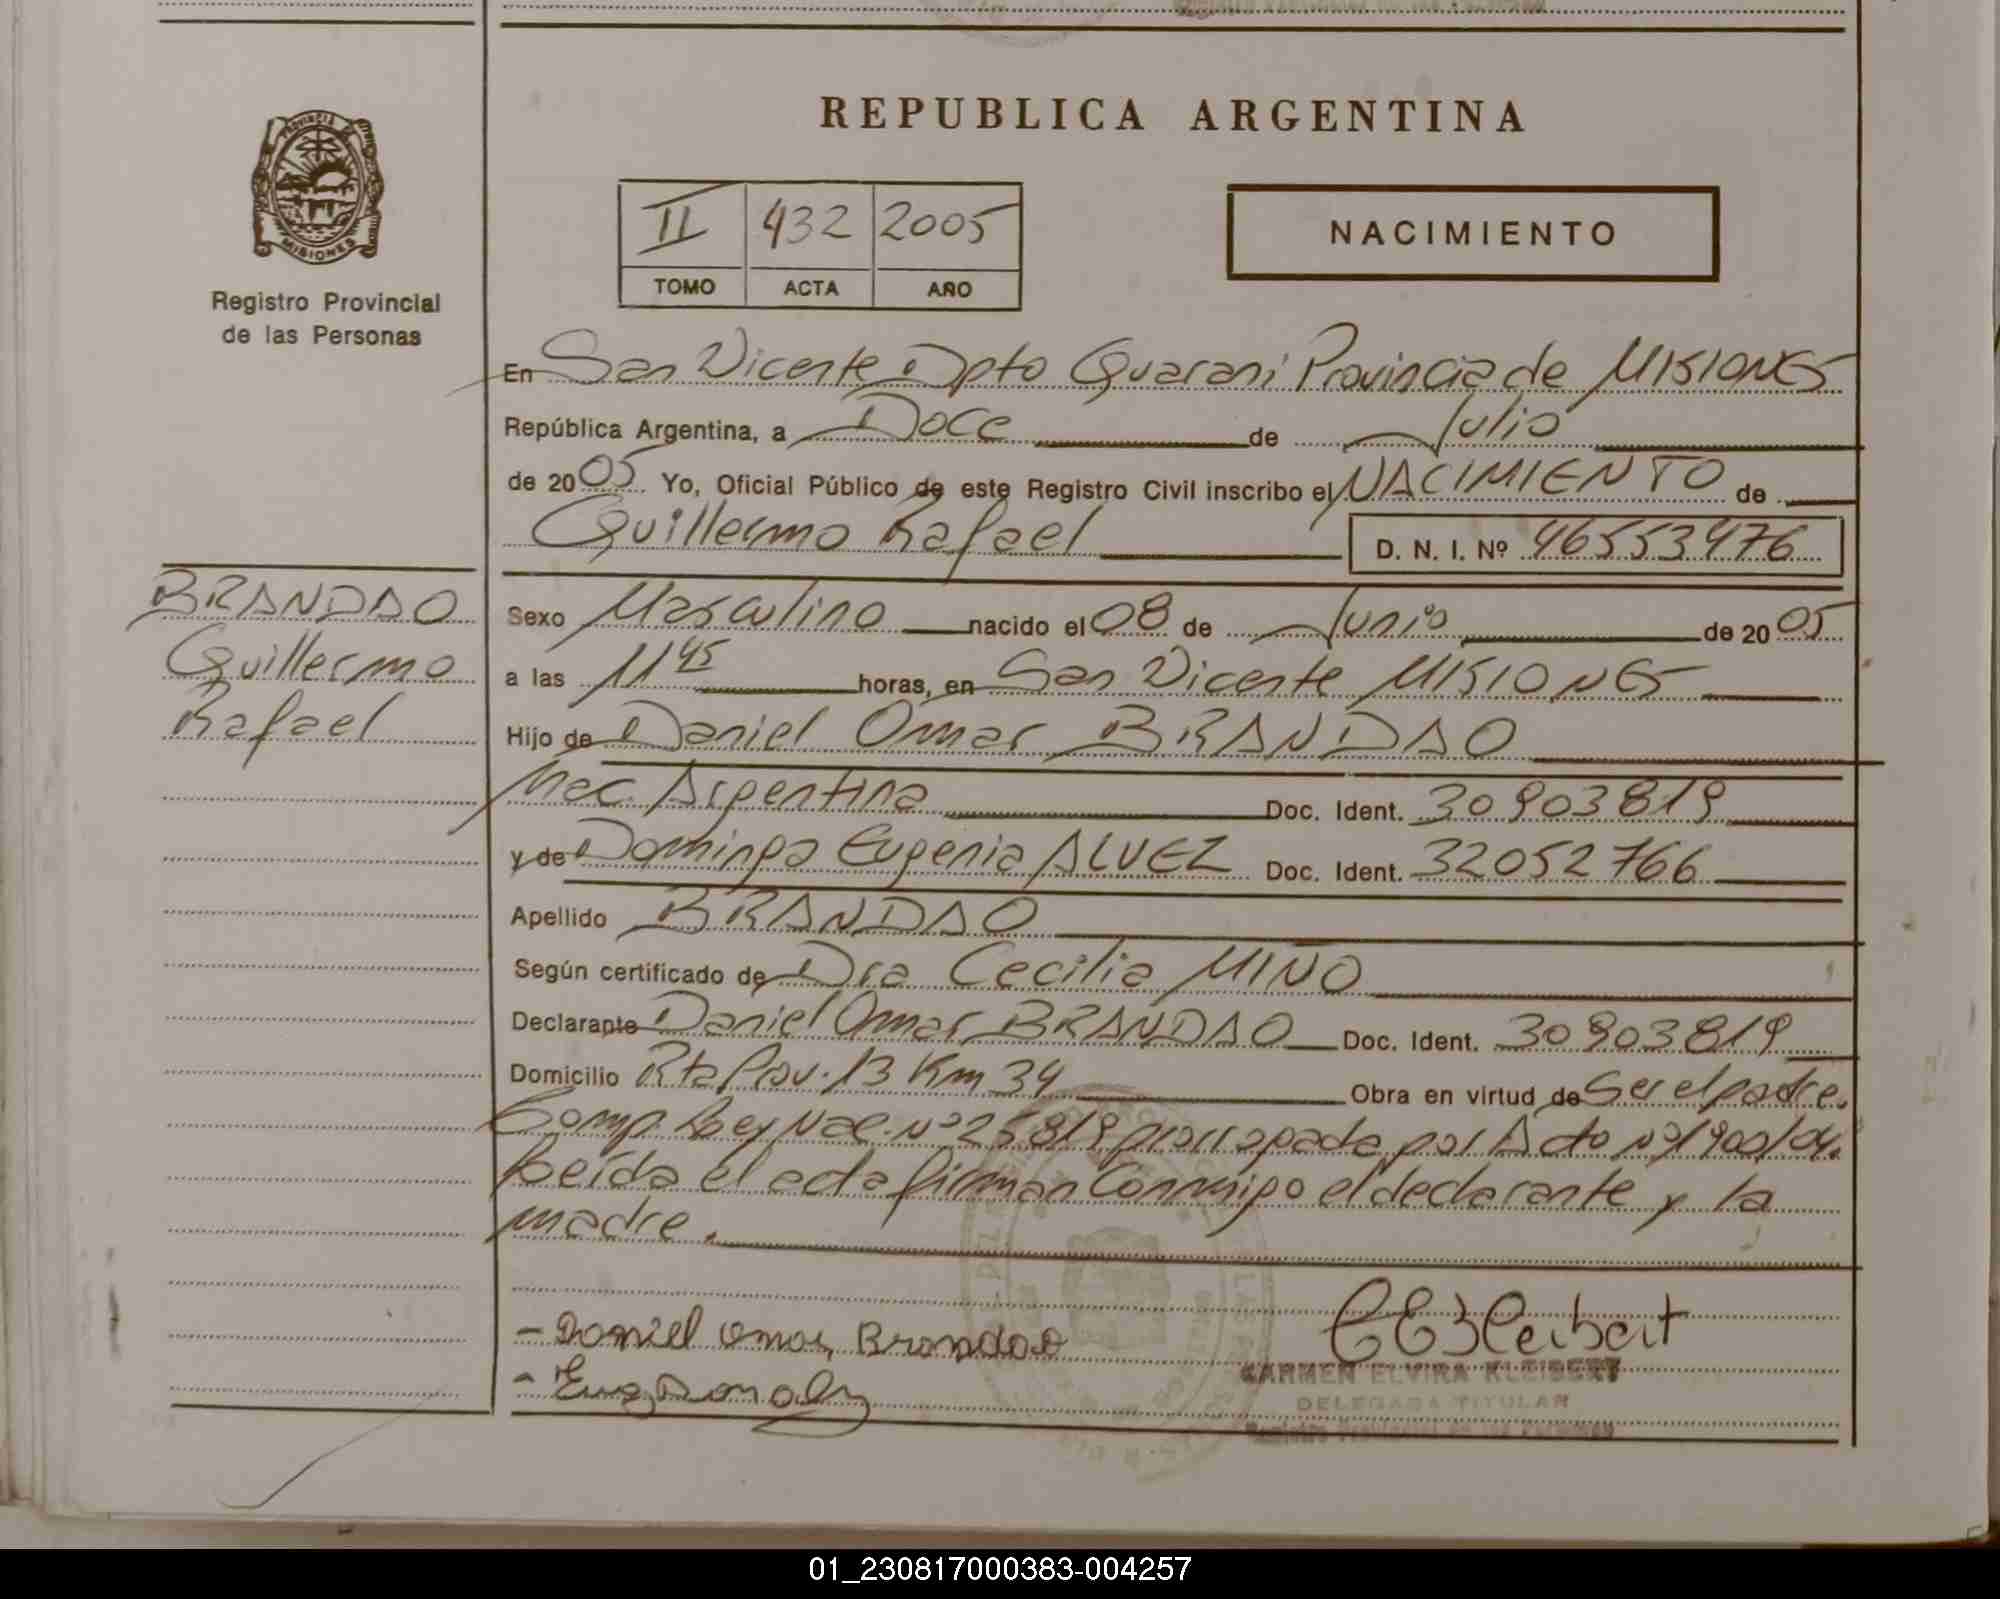 REPUBLICA ARGENTINA
PROVINCIA DE
MISIONES
Registro Provincial
de las Personas
II 432 2005
TOMO ACTA AÑO
NACIMIENTO
En San Vicente Dpto Guaraní Provincia de MISIONES
República Argentina, a Doce de Julio
de 2005 Yo, Oficial Público de este Registro Civil inscribo el NACIMIENTO de
Guillermo Rafael D. N. I. Nº 46553476
BRANDAO
Guillermo
Rafael
Sexo Masculino nacido el 08 de Junio de 2005
a las 11 45 horas, en San Vicente MISIONES
Hijo de Daniel Omar BRANDAO
Nac. Argentina Doc. Ident. 30903819
y de Dominga Eugenia ALVEZ Doc. Ident. 32052766
Apellido BRANDAO
Según certificado de Dra Cecilia MIÑO
Declarante Daniel Omar BRANDAO Doc. Ident. 30903819
Domicilio Rta Prov. 13 Km 34 Obra en virtud de Ser el padre.
Comp. Ley Nac. nº 25819 prorrogada por Dcto nº 1900/04.
Leída el acta firman Conmigo el declarante y la
madre.
- Daniel Omar Brandao
CEKleibert
CARMEN ELVIRA KLEIBERT
DELEGADA TITULAR
Registro Provincial de las Personas
01_230817000383-004257